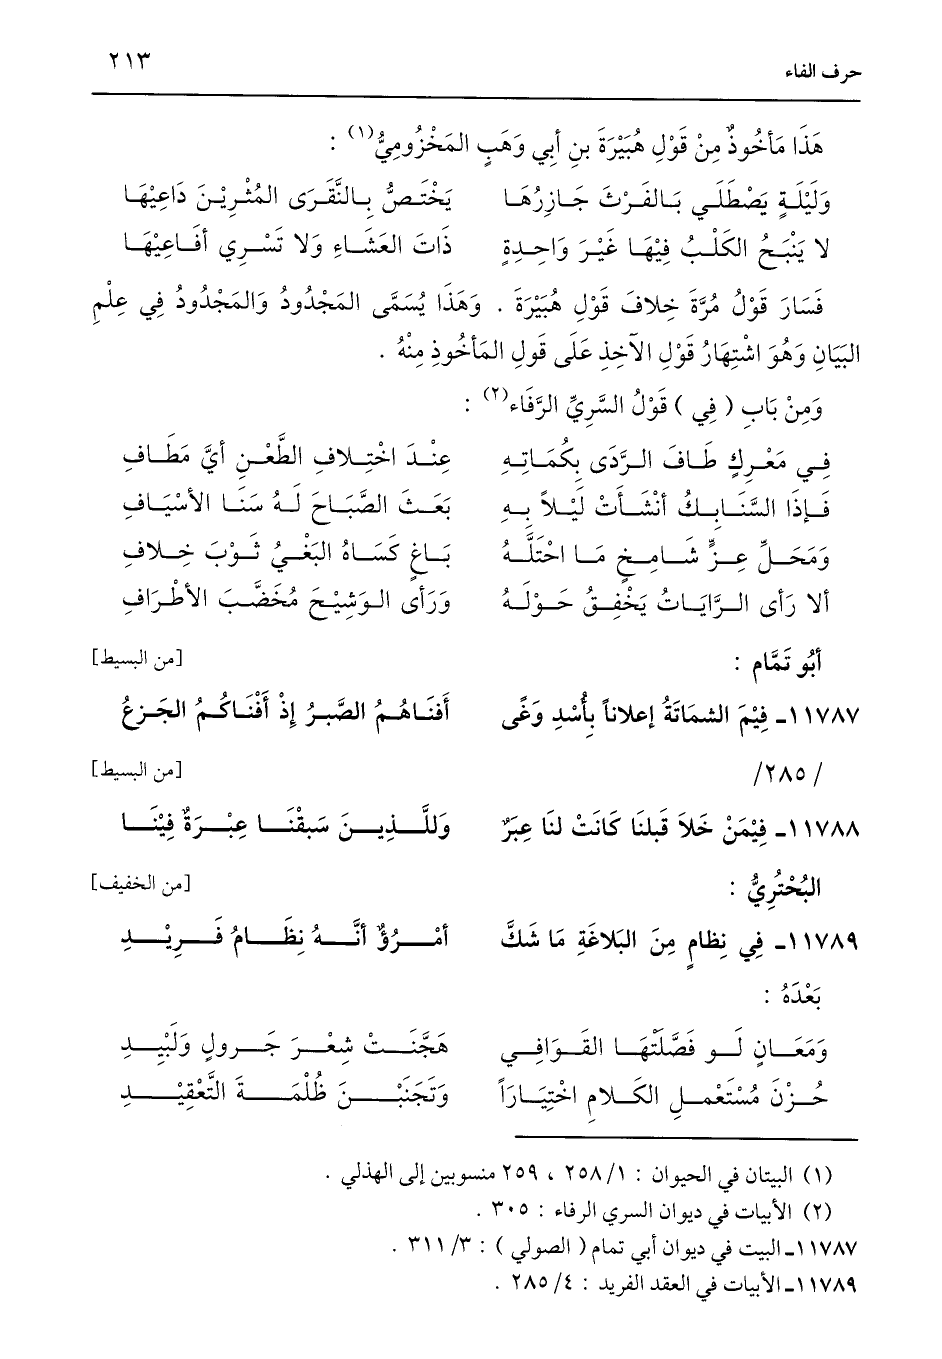 حرف الفاء ٢١٣
هَذَا مَأخُوذٌ مِنْ قَوْلِ هُبَيْرَةَ بنِ أبِي وَهَبٍ المَخْزُومِيُّ(١) :
وَلَيْلَةٍ يَصْطَلَي بَالفَرْثَ جَازِرُهَا يَخْتَصُّ بِالنَّقَرَى المُثْرِيْنَ دَاعِيْهَا
لا يَنْبَحُ الكَلْبُ فِيْهَا غَيْرَ وَاحِدِةٍ ذَاتَ العَشَاءِ وَلا تَسْرِي أفَاعِيْهَا
فَسَارَ قَوْلُ مُرَّةَ خِلافَ قَوْلِ هُبَيْرَةَ . وَهَذَا يُسَمَّى المَجْدُودُ وَالمَجْدُودُ فِي عِلْمِ
البَيَانِ وَهُوَ اشْتِهَارُ قَوْلِ الآخِذِ عَلَى قَولِ المَأخُوذِ مِنْهُ .
وَمِنْ بَابِ ( فِي ) قَوْلُ السَّرِيِّ الرَّفَاء(٢) :
فِي مَعْرِكٍ طَافَ الرَّدَى بِكُمَاتِهِ عِنْدَ اخْتِلافِ الطَّعْنِ أيَّ مَطَافِ
فَإذَا السَّنَابِكُ أنْشَأتْ لَيْلاً بِهِ بَعَثَ الصَّبَاحَ لَهُ سَنَا الأسْيَافِ
وَمَحَلِّ عِزٍّ شَامِخٍ مَا احْتَلَّهُ بَاغٍ كَسَاهُ البَغْيُ ثَوْبَ خِلافِ
ألا رَأى الرَّايَاتُ يَخْفِقُ حَوْلَهُ وَرَأى الوَشِيْحَ مُخَضَّبَ الأطْرَافِ
أبُو تَمَّام : [من البسيط]
١١٧٨٧ـ فِيْمَ الشمَاتَةُ إعلاناً بِأُسْدِ وَغًى أفنَاهُمُ الصَّبرُ إذْ أَفْنَاكُمُ الجَزعُ
/٢٨٥/ [من البسيط]
١١٧٨٨ـ فِيْمَنْ خَلاَ قَبلنَا كَانَتْ لنَا عِبَرٌ وَللَّذِينَ سَبقْنَا عِبْرَةٌ فِيْنَا
البُحْتُرِيُّ : [من الخفيف]
١١٧٨٩ـ فِي نِظامٍ مِنَ البَلاغَةِ مَا شَكَّ أمْرُؤٌ أنَّهُ نِظَامُ فَرِيْدِ
بَعْدَهُ :
وَمَعَانٍ لَو فَصَّلَتْهَا القَوَافِي هَجَّنَتْ شِعْرَ جَرولٍ وَلَبِيْدِ
حُزْنَ مُسْتَعْملِ الكَلامِ اخْتِيَارَاً وَتَجَنَبْنَ ظُلْمَةَ التَّعْقِيْدِ
(١) البيتان في الحيوان : ١/ ٢٥٨ ، ٢٥٩ منسوبين إلى الهذلي .
(٢) الأبيات في ديوان السري الرفاء : ٣٠٥ .
١١٧٨٧ـ البيت في ديوان أبي تمام ( الصولي ) : ٣/ ٣١١ .
١١٧٨٩ـ الأبيات في العقد الفريد : ٤/ ٢٨٥ .